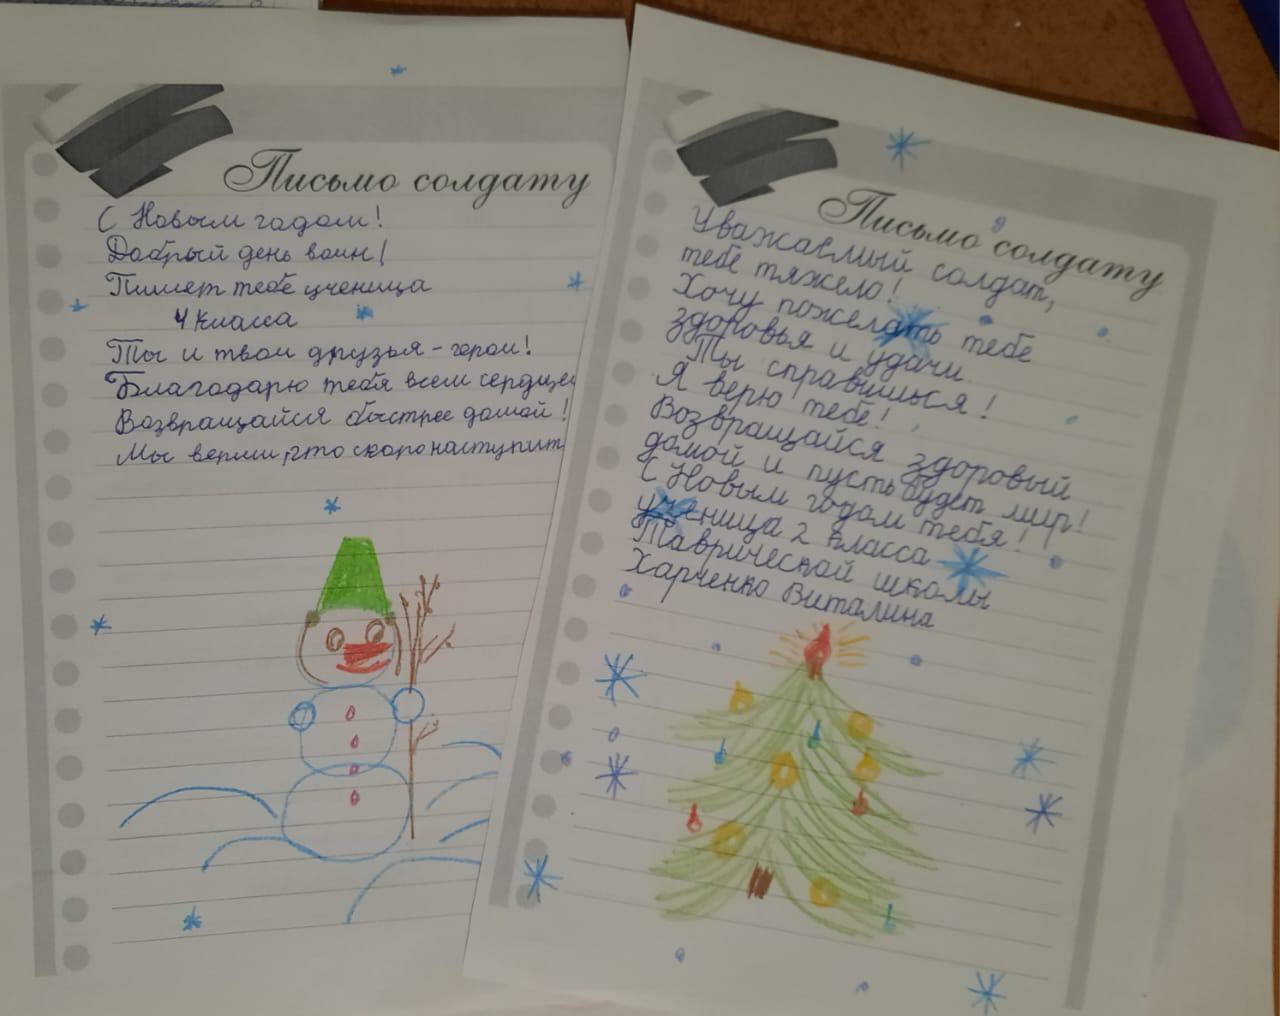 Письмо солдату
С Новым годом!
Добрый день воин!
Пишет тебе ученица
4 класса
Ты и твои друзья - герои!
Благодарю тебя всем сердцем
Возвращайся быстрее домой!
Мы верим, что скоро наступит
Письмо солдату
Уважаемый солдат,
тебе тяжело!
Хочу пожелать тебе
здоровья и удачи
Ты справишься!
Я верю тебе!
Возвращайся здоровый
домой и пусть будет мир!
С Новым годом тебя!
ученица 2 класса
Таврической школы
Харченко Виталина